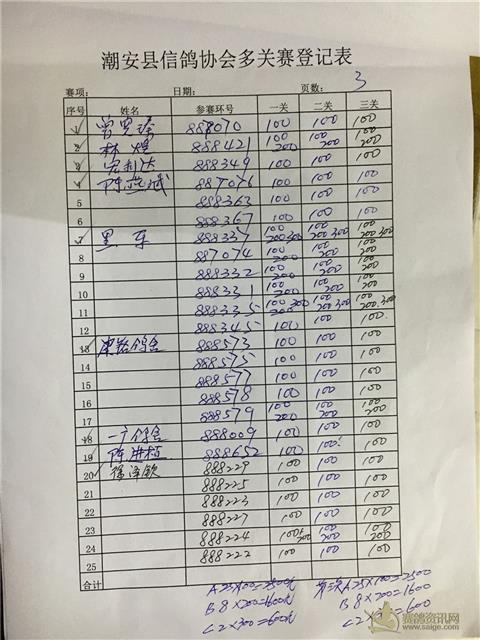 潮安县信鸽协会多关赛登记表
赛项: 日期: 页数: 3
序号 姓名 参赛环号 一关 二关 三关
1 888070 100 100 100
2 林 888421 100 200 100 200 100 200
3 宏利达 888349 100 100 100
4 陈 887076 100 100 100
5 888363 100 100 100
6 888367 100 100 100
7 黑车 888337 100 200 300 100 200 300 100 200 300
8 887074 100 200 100 200 100 200
9 888332 100 200 100 200 100 200
10 888331 100 200 100 200 100 200
11 888335 100 200 300 100 200 300 100 200 300
12 888345 100 100 100
13 888573 100 100 100
14 888575 100 100 100
15 888577 100 100 100
16 888578 100 100 100
17 888579 100 200 100 200 100 200
18 888009 100 100 100
19 陈 888652 100 100 100
20 徐泽钦 888229 100 100 100
21 888225 100 100 100
22 888223 100 100 100
23 888227 100 100 100
24 888224 100 200 100 200 100 200
25 888222 100 100 100
合计
A 25×100=2500元 A 25×100=2500
B 8×200=1600元 B 8×200=1600
C 2×300=600元 C 2×300=600
赛鸽资讯网
www.saige.com